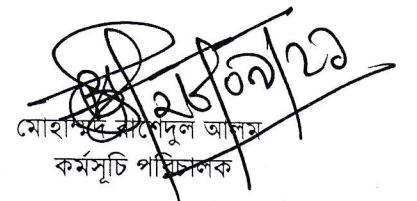 ২৮/০৯/২১
মোহাম্মদ রাশেদুল আলম
কর্মসূচি পরিচালক